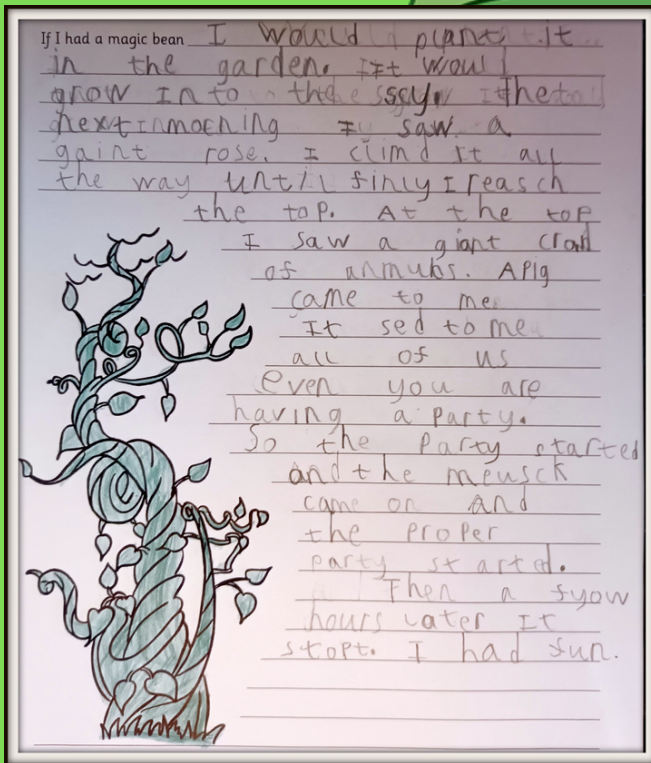 If I had a magic bean I would plant it
in the garden. It woul
grow Into the sky. the
next morning I saw a
gaint rose. I climd It all
the way until finly I reasch
the top. At the top
I saw a giant crad
of anmubs. A Pig
came to me
It sed to me
all of us
even you are
having a party.
So the Party started
and the meusck
came on and
the proper
party started.
Then a fyow
hours later It
stopt. I had fun.